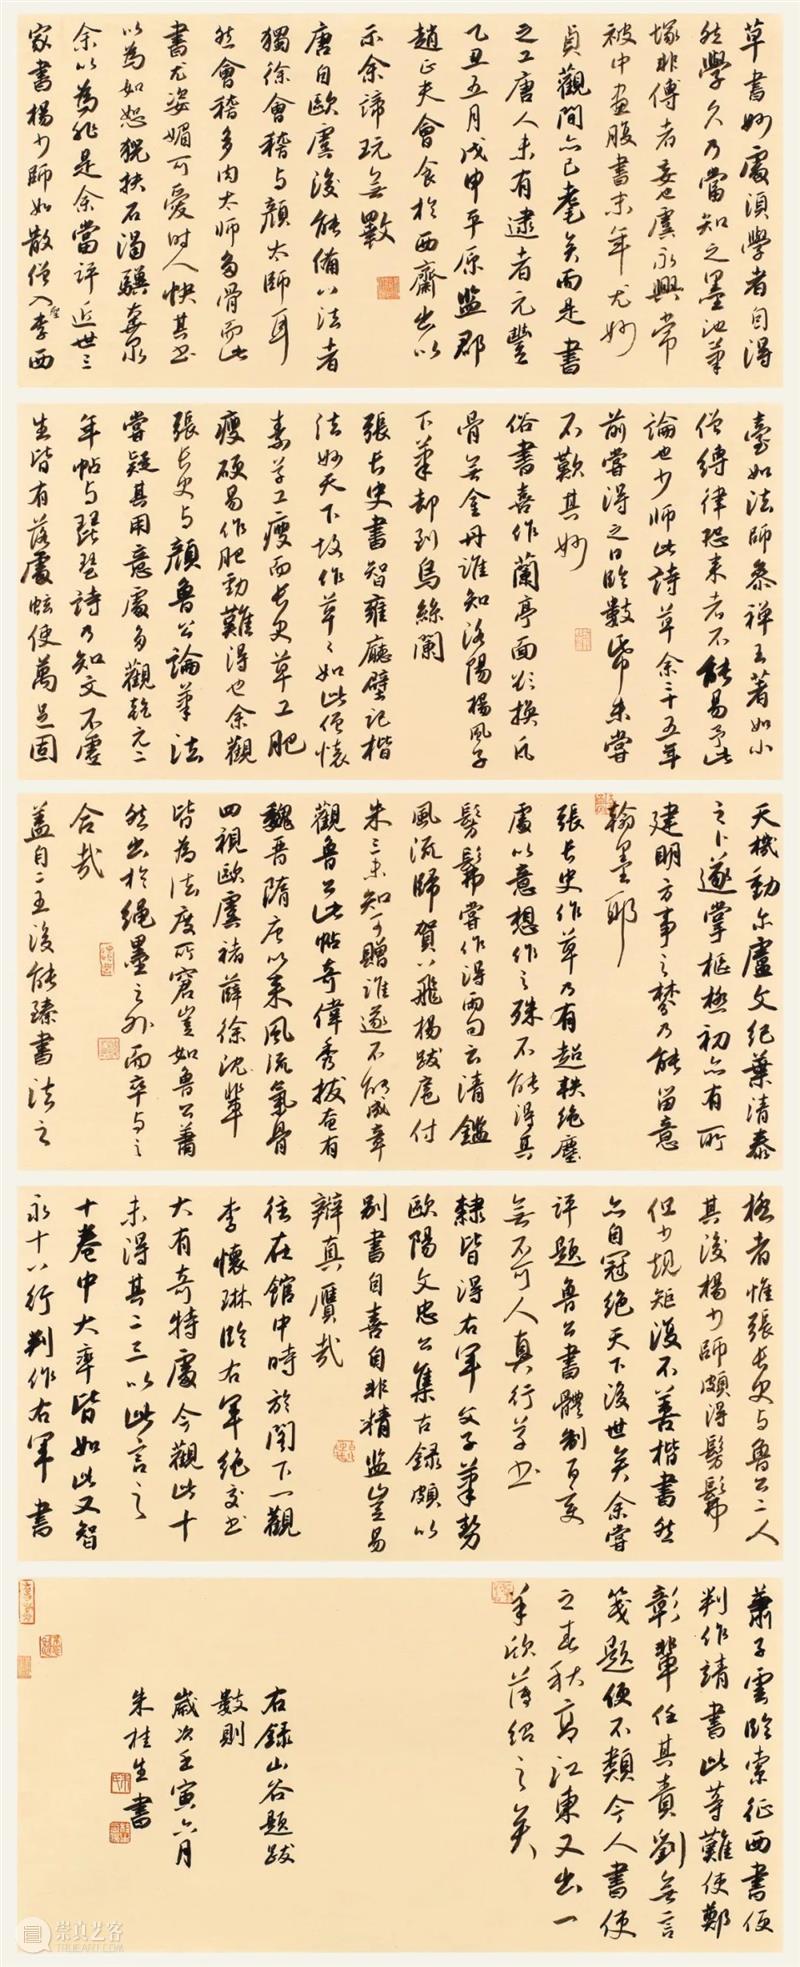 草書妙處須學者自得
然學久乃當知之墨池筆
塚非傳者妄也虞永興常
被中畫腹書末年尤妙
貞觀間亦已耄矣而是書
之工唐人未有逮者元豐
乙丑五月戊申平原監郡
趙正夫會食於西齋出以
示余諦玩無斁
唐自歐虞後能備八法者
獨徐會稽與顏太師耳
然會稽多肉太師多骨而此
書尤姿媚可愛時人快其書
以為如怒猊抉石渴驥奔泉
余以為非是余當評近世三
家書楊少師如散僧入聖李西
臺如法師參禪王著如小
僧縛律恐來者不能易予此
論也少師此詩草余二十五年
前嘗得之日臨數紙未嘗
不歎其妙
俗書喜作蘭亭面欲換凡
骨無金丹誰知洛陽楊風子
下筆卻到烏絲闌
張長史書智雍廳壁記楷
法妙天下故作草草如此僧懷
素草工瘦而長史草工肥
瘦硬易作肥勁難得也余觀
張長史與顏魯公論筆法
嘗疑其用意處多觀乾元二
年帖與琵琶詩乃知文不虛
生皆有落處蚿使萬足固
天機動爾盧文紀葉清泰
之卜遂掌樞極初亦有所
建明方事之棼乃能留意
翰墨耶
張長史作草乃有超軼絕塵
處以意想作之殊不能得其
髣髴嘗作得兩句云清鑑
風流歸賀八飛揚跋扈付
朱三未知可贈誰遂不能成章
觀魯公此帖奇偉秀拔奄有
魏晉隋唐以來風流氣骨
回視歐虞褚薛徐沈輩
皆為法度所窘豈如魯公蕭
然出於繩墨之外而卒與之
合哉
蓋自二王後能臻書法之
極者惟張長史與魯公二人
其後楊少師頗得髣髴
但少規矩復不善楷書然
亦自冠絕天下後世矣余嘗
評題魯公書體制百變
無不可人真行草書
隸皆得右軍父子筆勢
歐陽文忠公集古錄頗以
別書自喜自非精監豈易
辯真贗哉
往在館中時於閣下一觀
李懷琳臨右軍絕交書
大有奇特處今觀此十
未得其二三以此言之
十卷中大率皆如此又智
永十八行判作右軍書
蕭子雲臨索征西書便
判作靖書此等難使鄭
彰輩任其責劉無言
箋題便不類今人書使
之春秋高江東又出一
羊欣薄紹之矣
右錄山谷題跋
數則
歲次壬寅六月
朱桂生書
崇真艺客
TRUEART.COM